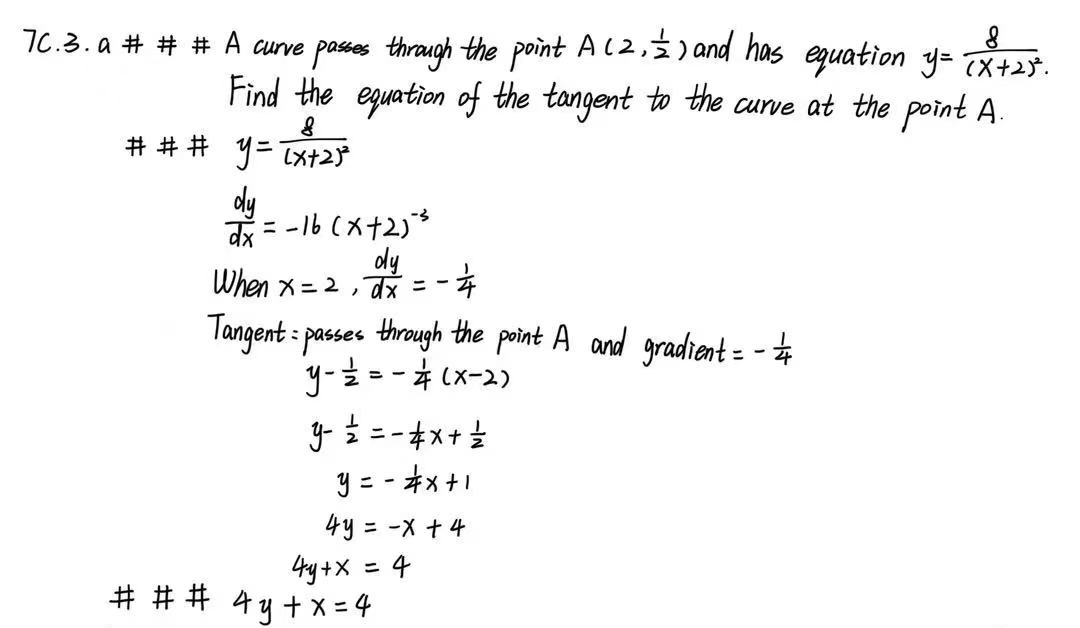 7C.3.a # # # A curve passes through the point A(2, 1/2) and has equation y = 8/(x+2)².
Find the equation of the tangent to the curve at the point A.
# # # y = 8/(x+2)²
dy/dx = -16(x+2)⁻³
When x = 2, dy/dx = -1/4
Tangent: passes through the point A and gradient = -1/4
y - 1/2 = -1/4(x-2)
y - 1/2 = -1/4x + 1/2
y = -1/4x + 1
4y = -x + 4
4y + x = 4
# # # 4y + x = 4